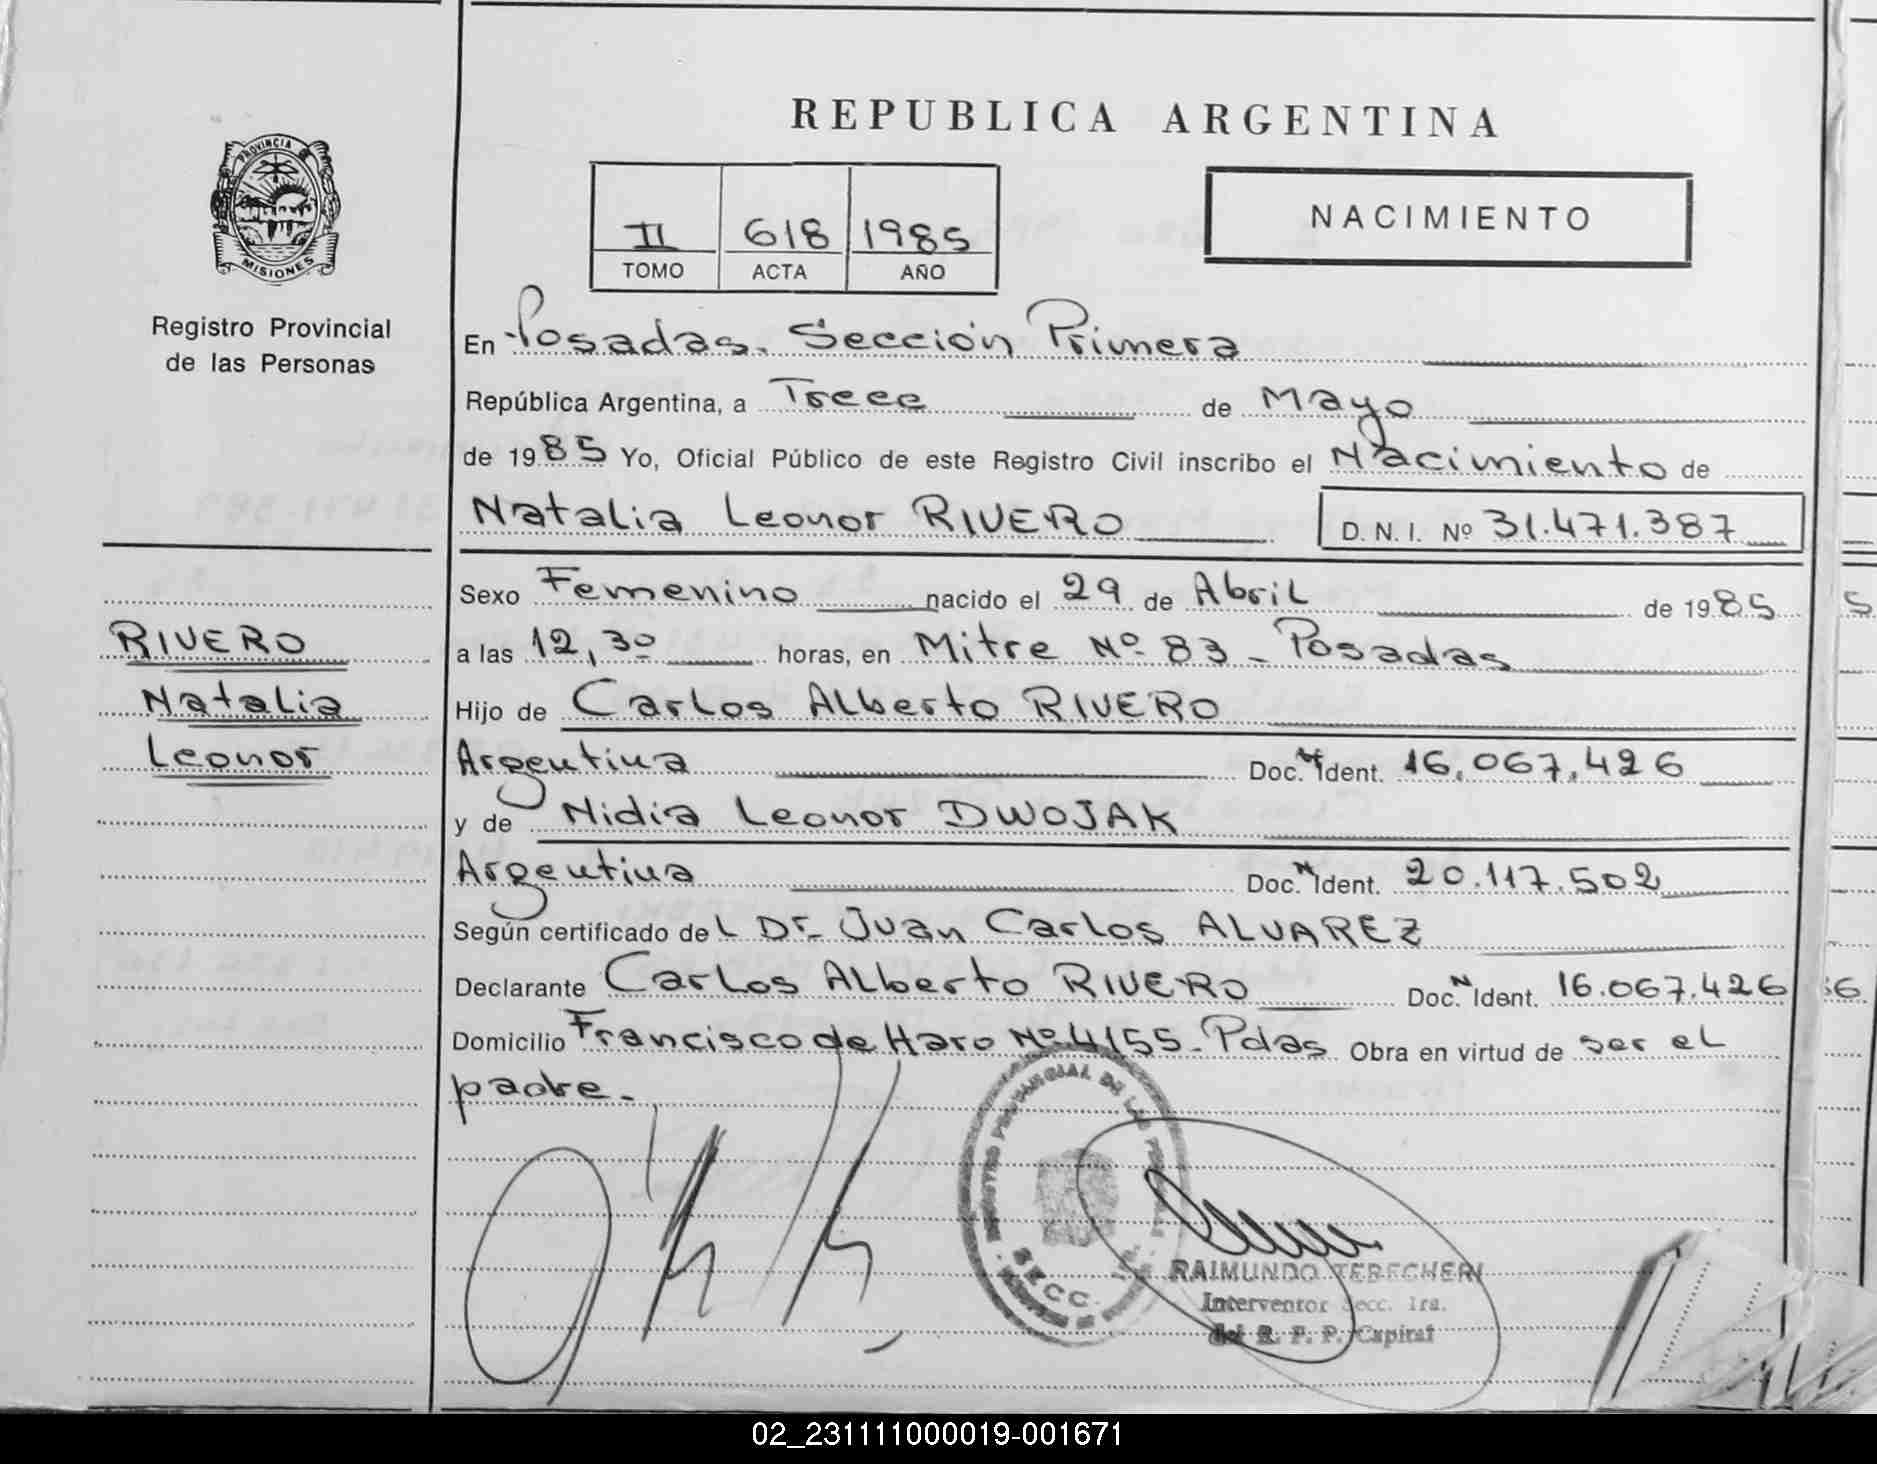 REPUBLICA ARGENTINA
PROVINCIA
MISIONES
Registro Provincial
de las Personas
II 618 1985
TOMO ACTA AÑO
NACIMIENTO
En Posadas. Sección Primera
República Argentina, a Trece de Mayo
de 1985 Yo, Oficial Público de este Registro Civil inscribo el Nacimiento de
Natalia Leonor RIVERO D. N. I. Nº 31.471.387
Sexo Femenino nacido el 29 de Abril de 1985
a las 12,30 horas, en Mitre Nº 83 - Posadas
Hijo de Carlos Alberto RIVERO
Argentina Doc. N Ident. 16.067.426
y de Nidia Leonor DWOJAK
Argentina Doc. N Ident. 20.117.502
Según certificado del Dr. Juan Carlos ALVAREZ
Declarante Carlos Alberto RIVERO Doc. N Ident. 16.067.426
Domicilio Francisco de Haro Nº 4155 - Pdas Obra en virtud de ser el
padre.-
RIVERO
Natalia
Leonor
REGISTRO PROVINCIAL DE LAS
SECC.
RAIMUNDO TERECHERI
Interventor Secc. 1ra.
del R. P. P. Capital
02_231111000019-001671